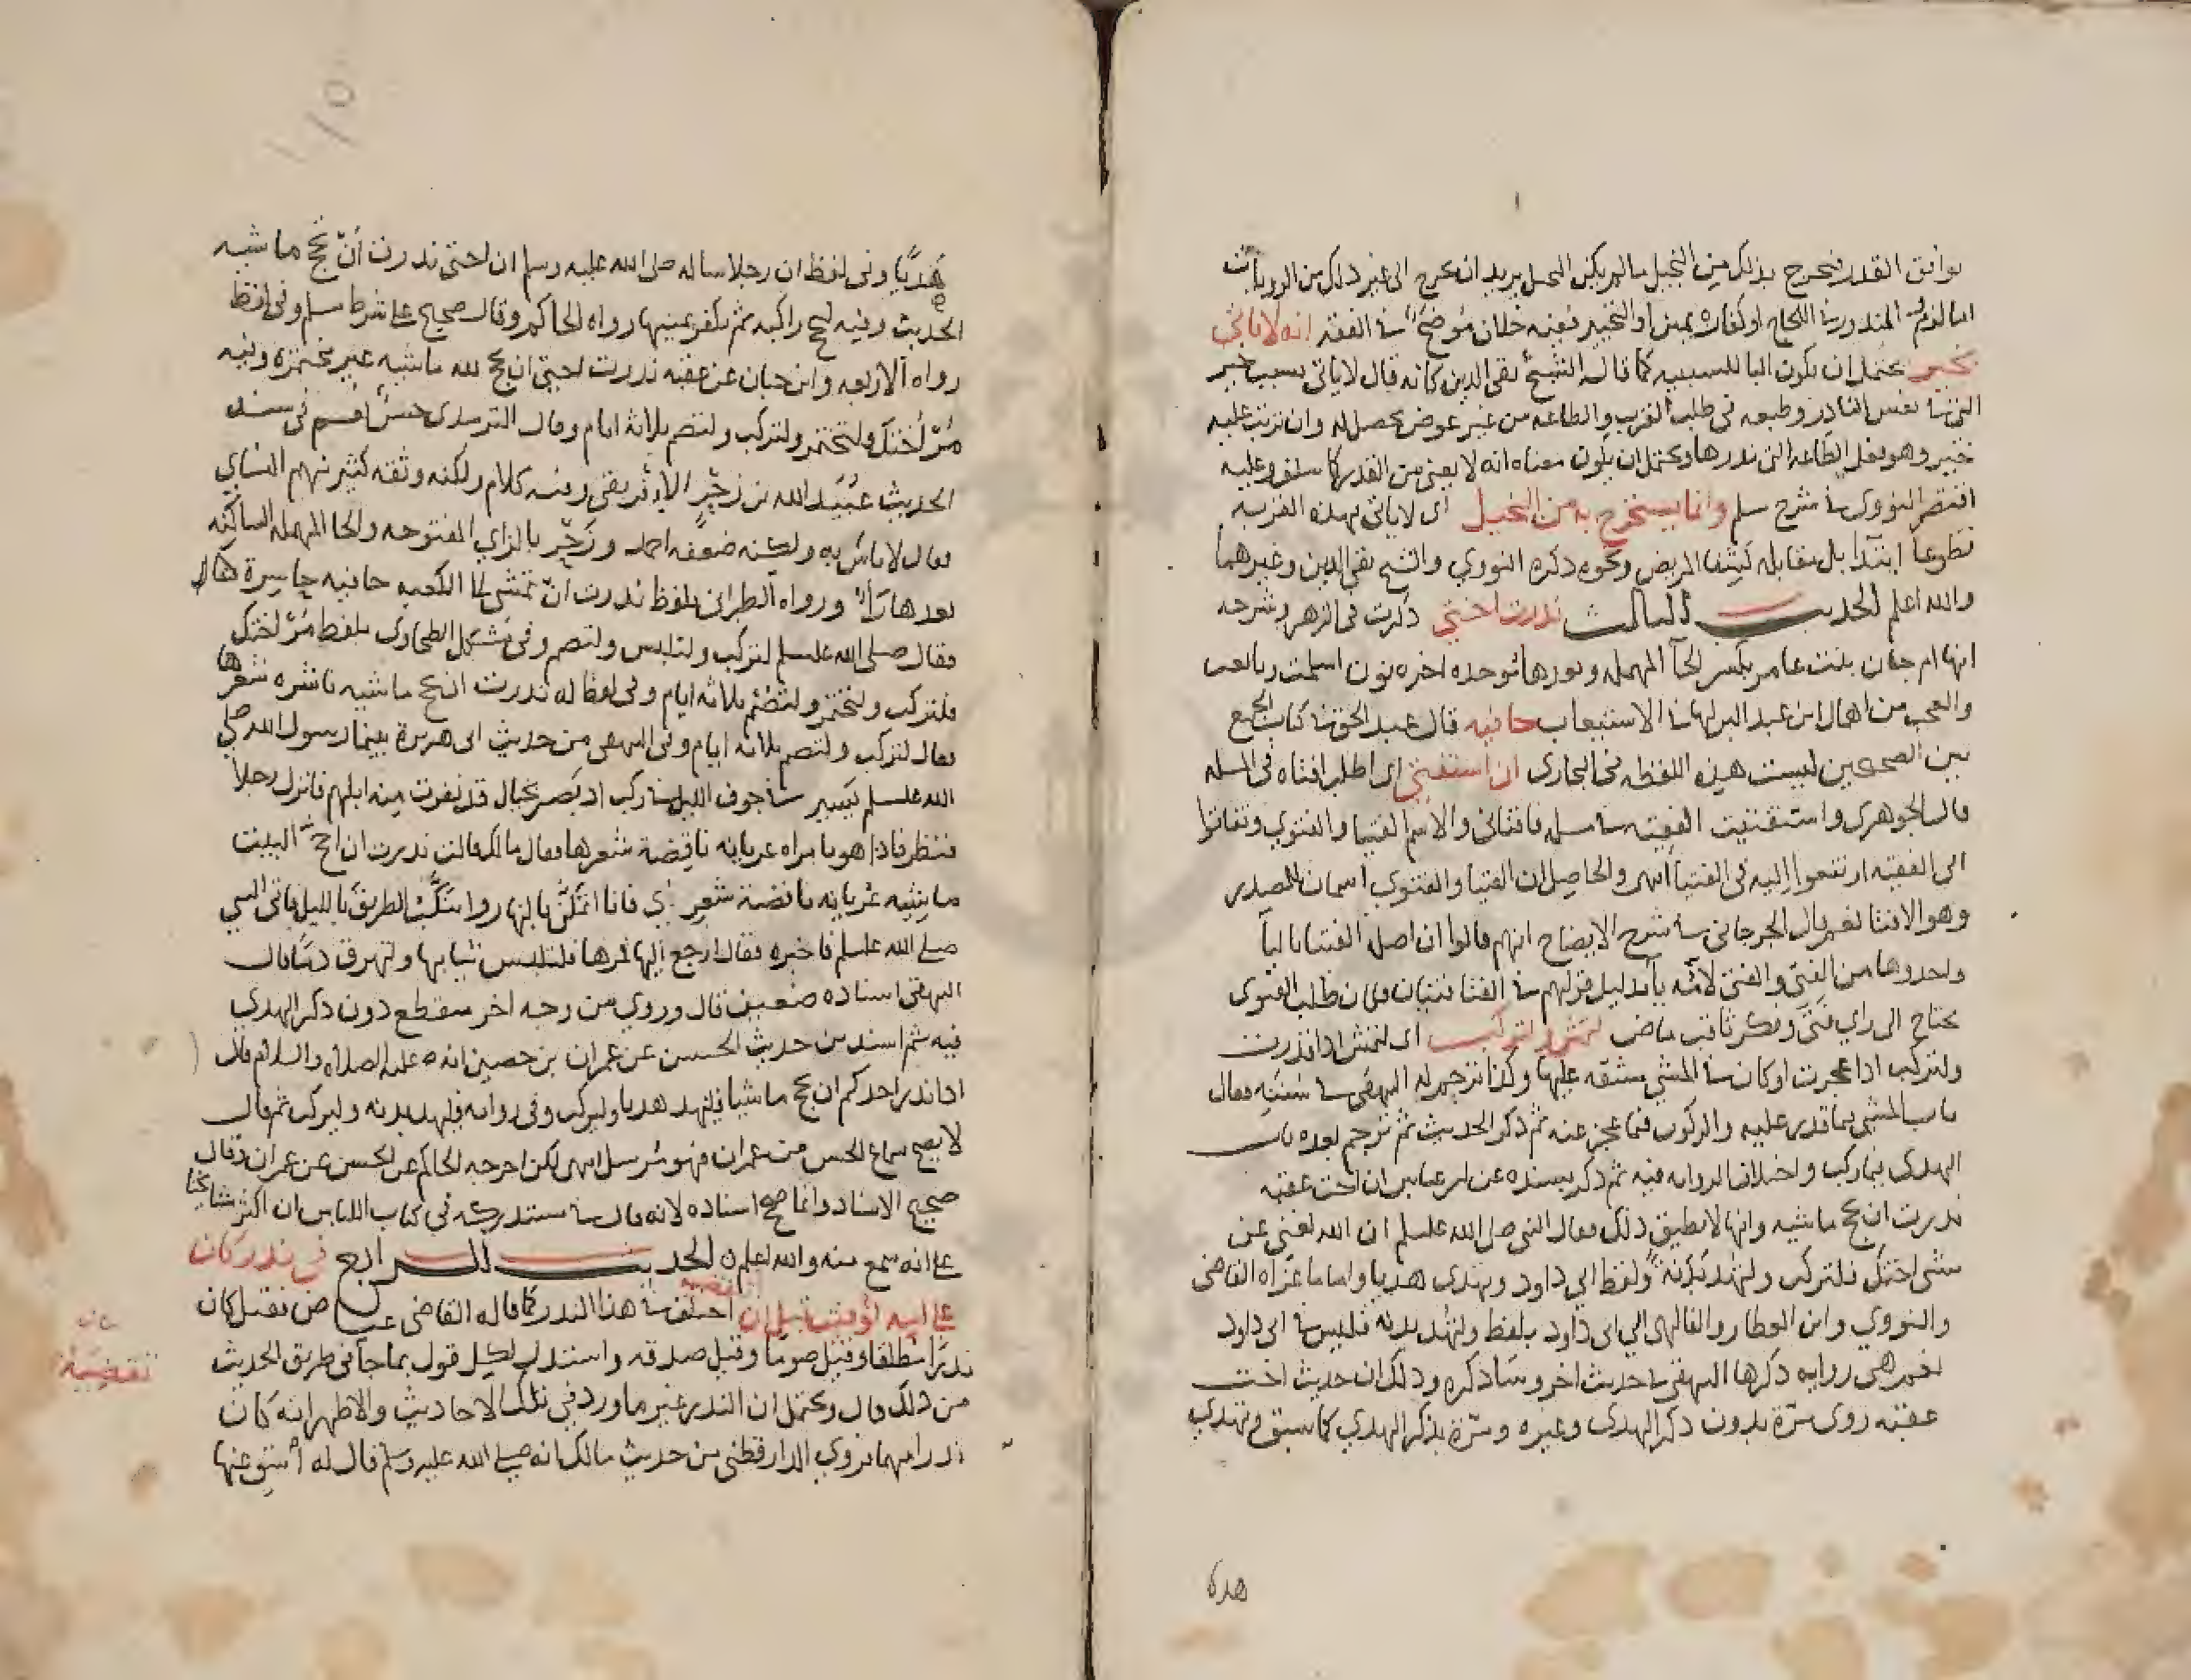 يوافق القدر فيخرج بذلك من البخيل ما لم يكن البخيل يريد ان يخرج الى غير ذلك من الروايات
اما لزوم المنذور في اللجاج او كفارة يمين او التخيير ففيه خلاف موضح في الفقه انه لا ياتي
بخير يحتمل ان يكون البا للسببيه كما قال الشيخ تقي الدين كانه قال لا ياتي بسبب خير
نفس الناذر وطبعه في طلب القرب والطاعه من غير عوض يحصل له وان ترتب عليه
خير وهو فعل الطاعه التي نذرها ويحتمل ان يكون معناه انه لا يغني من القدر كما سلف وعليه
اقتصر النووي في شرح مسلم وانما يستخرج به من البخيل اى لا ياتي بهذه القربه
تطوعا ابتدا بل مقابله كشفا المريض ونحوه ذكره النووي والشيخ تقي الدين وغيرهما
والله اعلم الحديث الثالث نذرت اختي ذكرت في الزهر وشرحه
انها ام حبان بنت عامر بكسر الحآ المهمله وبعدها موحده اخره نون اسلمت وبايعت
والعجب من اهمال ابن عبد البر لها في الاستيعاب حافيه قال عبد الحق في كتاب الجمع
بين الصحيحين ليست هذه اللفظه في البخارى ان استفتي اى اطلب افتاه في المسله
قال الجوهرى واستفتيت الفقيه في مسله فافتاني والاسم الفتيا والفتوي وتفاتوا
الى الفقيه ارتفعوا اليه في الفتيا انتهى والحاصل ان الفتيا والفتوي اسمان للمصدر
وهو الافتا نعم قال الجرجاني في شرح الايضاح انهم قالوا ان اصل الفتيا باليا
واخذوها من الفتي والفتى لامه يا بدليل قولهم في الفتا فتيان فان طلب الفتوى
يحتاج الى راي فتي وفكر ثاقب ماض لتمش ولتركب اى لتمش اذا قدرت
ولتركب اذا عجزت او كان في المشي مشقه عليها وكذا ترجم له البيهقي في سننه فقال
باب المشي بما قدر عليه والركوب فيما عجز عنه ثم ذكر الحديث ثم ترجم بعده باب
الهدى بما ركب واختلاف الروايه فيه ثم ذكر بسنده عن ابن عباس ان اخت عقبه
نذرت ان تحج ماشيه وانها لا تطيق ذلك فقال النبي صلى الله عليه وسلم ان الله لغني عن
مشي اختك فلتركب ولتهد بدنة ولفظ ابي داود ويهدى هديا واما ما عزاه القاضي
والنووي وابن العطار والفاكهي الي ابي داود بلفظ ولتهد بدنه فليس في ابى داود
نعم هي روايه ذكرها البيهقي في حديث اخر وساذكره وذلك ان حديث اخت
عقبه روى مرة بدون ذكر الهدى وغيره ومرة بذكر الهدي كما سبق وتهدي
هديا
هديا وفي لفظ ان رجلا ساله صلى الله عليه وسلم ان اختي نذرت ان تحج ماشيه
الحديث وفيه لتحج راكبه ثم تكفر يمينها رواه الحاكم وقال صحيح على شرط مسلم وفي لفظ
رواه الاربعه وابن حبان عن عقبه نذرت اختي ان تحج لله ماشيه غير مختمره وفيه
مر اختك ولتختمر ولتركب ولتصم ثلاثه ايام وقال الترمذى حسن نعم في سند
الحديث عبيد الله بن زحر الافريقي وفيه كلام ولكنه وثقه كثير منهم النساي
فقال لا باس به ولكنه ضعفه احمد وزحر بالزاي المفتوحه والحا المهمله الساكنه
بعدها رآ ورواه الطبراني بلفظ نذرت ان تمشي الى الكعبه حافيه حاسرة قال
فقال صلى الله عليه وسلم لتركب ولتلبس ولتصم وفي مشكل الطحاوى بلفظ مر اختك
فلتركب ولتختمر ولتصم ثلاثه ايام وفي لفظ له نذرت ان تحج ماشيه ناشره شعرها
فقال لتركب ولتصم ثلاثه ايام وفي البيهقي من حديث ابى هريرة بينما رسول الله صلى
الله عليه وسلم يسير في جوف الليل في ركب اذ بصر بخيال قد نفرت منه ابلهم فانزل رجلا
فنظر فاذا هو بامراه عريانه ناقضة شعرها فقال ما لك قالت نذرت ان احج البيت
ماشيه عريانه ناقضة شعري فانا اتكمن بالنهار واتنكب الطريق بالليل فاتى النبي
صلى الله عليه وسلم فاخبره فقال ارجع اليها فمرها فلتلبس ثيابها ولتهرق دما قال
البيهقي اسناده ضعيف قال وروي من وجه اخر منقطع دون ذكر الهدي
فيه ثم اسند من حديث الحسن عن عمران بن حصين انه عليه الصلاه والسلام قال
اذا نذر احدكم ان يحج ماشيا فليهد هديا وليركب وفي روايه فليهد بدنه وليركب ثم قال
لا يصح سماع الحسن من عمران فهو مرسل انتهى لكن اخرجه الحاكم عن الحسن عن عمران وقال
صحيح الاسناد وانما صحح اسناده لانه قال في مستدركه في كتاب اللباس ان اكثر مشايخنا
على انه سمع منه والله اعلم الحديث الرابع في نذر كان
على امه توفيت قبل ان تقضيه اختلف في هذا النذر كما قاله القاضي عياض فقيل كان
نذرا مطلقا وقيل صوما وقيل صدقه واستدل لكل قول بما جآ في طريق الحديث
من ذلك قال ويحتمل ان النذر غير ما ورد في تلك الاحاديث والاظهر انه كان
نذرا مبهما فروي الدارقطني من حديث مالك انه صلى الله عليه وسلم قال له اسق عنها
تقضيه